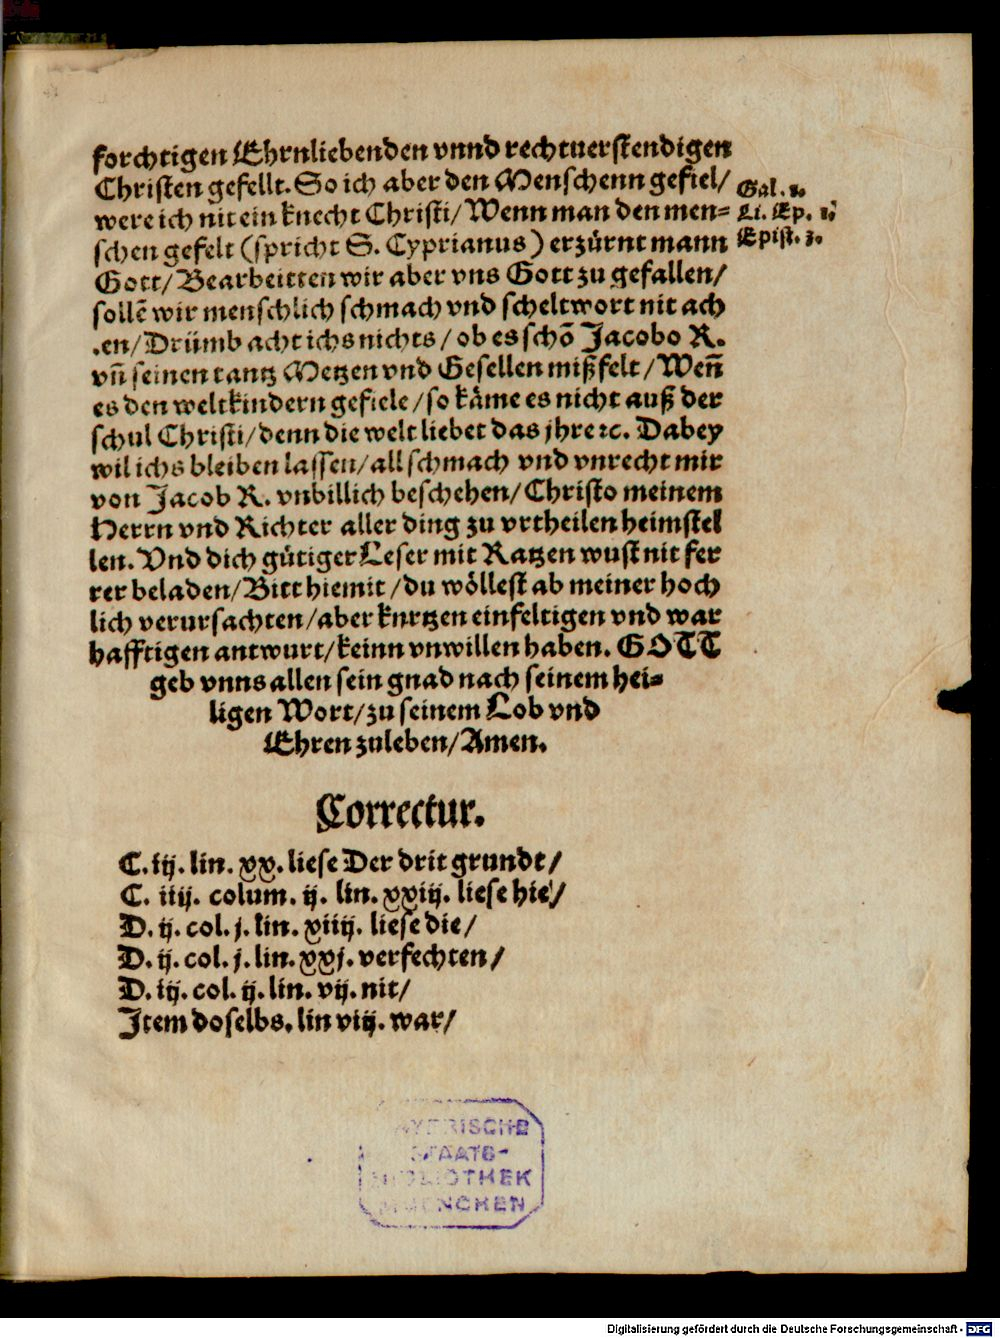 forchtigen Ehrnliebenden vnnd rechtuerstendigen
Christen gefellt. So ich aber den Menschenn gefiel/
were ich nit ein knecht Christi/ Wenn man den men=
schen gefelt (spricht S. Cyprianus) erzürnt mann
Gott/ Bearbeitten wir aber vns Gott zu gefallen/
sollẽ wir menschlich schmach vnd scheltwort nit ach
.en/ Drümb acht ichs nichts/ ob es schõ Jacobo R.
vñ seinen tantz Metzen vnd Gesellen mißfelt/ Weñ
es den weltkindern gefiele/ so käme es nicht auß der
schul Christi/ denn die welt liebet das jhre ꝛc. Dabey
wil ichs bleiben lassen/ all schmach vnd vnrecht mir
von Jacob R. vnbillich beschehen/ Christo meinem
Herrn vnd Richter aller ding zu vrtheilen heimstel
len. Vnd dich gütiger Leser mit Ratzen wust nit fer
rer beladen/ Bitt hiemit/ du wöllest ab meiner hoch
lich verursachten/ aber kurtzen einfeltigen vnd war
hafftigen antwurt/ keinn vnwillen haben. GOTT
geb vnns allen sein gnad nach seinem hei=
ligen Wort/ zu seinem Lob vnd
Ehren zuleben/ Amen.
Gal.
Li. Ep.
Epist. 3.
Correctur.
C. iij. lin. xx. liese Der drit grundt/
C. iiij. colum. ij. lin. xxiij. liese hie/
D. ij. col. j. lin. xiiij. liese die/
D. ij. col. j. lin. xxj. verfechten/
D. iij. col. ij. lin. vij. nit/
Item doselbs. lin viij. war/
BAYERISCHE
STAATS-
BIBLIOTHEK
MUENCHEN
Digitalisierung gefördert durch die Deutsche Forschungsgemeinschaft - DFG